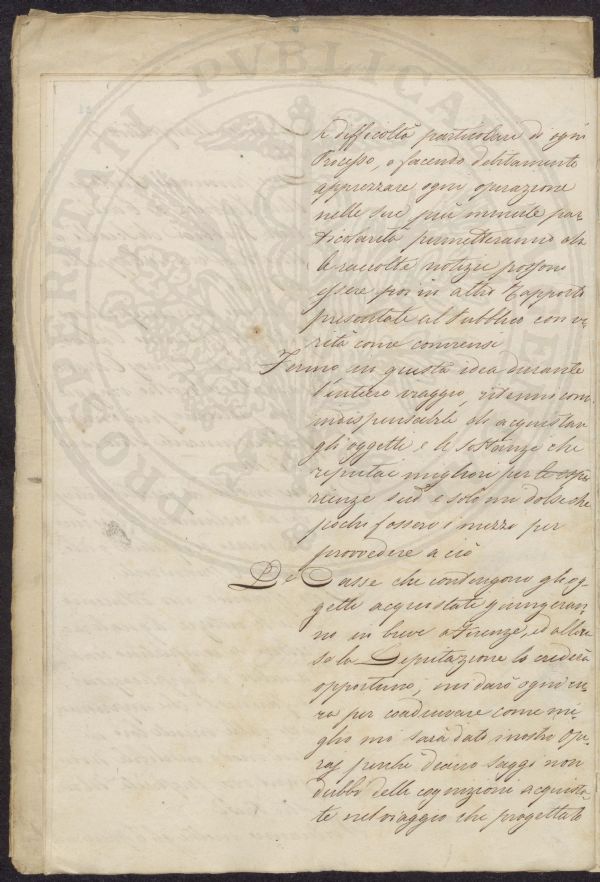 le difficoltà particolari di ogni
Processo, e facendo debitamente
apprezzare ogni operazione
nelle sue più minute par-
ticolarità permetteranno che
le raccolte notizie possono
essere poi in altro Rapporto
presentate al Pubblico con ve-
rità come conviensi
Fermo in questa idea durante
l'intiero viaggio, ritenni come
indispensabile di acquistare
gli oggetti e le sostanze che
reputai migliori per le espe-
rienze sud.e e solo mi dolse che
pochi fossero i mezzi per
provvedere a ciò
Le Casse che contengono gli og-
getti acquistati giungeran-
no in breve a Firenze, ed allora
se la Deputazione lo crederà
opportuno, mi darò ogni cu-
ra per coadiuvare come me-
glio mi sarà dato i nostri Ope-
raj perchè diano saggi non
dubbi delle cognizioni acquista-
te nel viaggio che progettato
PRO PUBLICA
PROSPERITATE